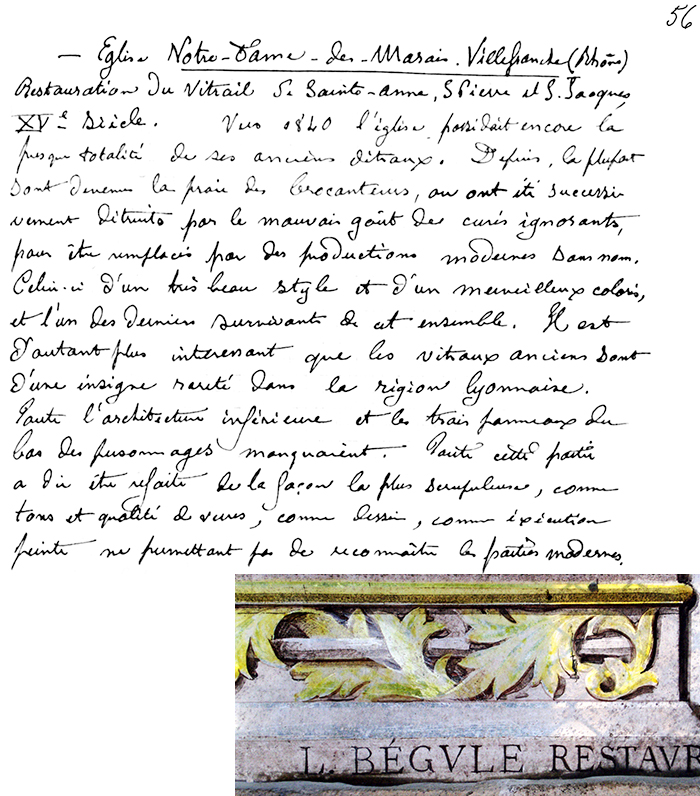 56
— Eglise Notre-Dame-des-Marais. Villefranche (Rhône)
Restauration du Vitrail de Sainte-anne, S Pierre et S. Jacques,
XVe siècle. Vers 1840 l'église possédait encore la
presque totalité de ses anciens vitraux. Depuis, la plupart
sont devenus la proie des brocanteurs, ou ont été successi
vement détruits par le mauvais goût de curés ignorants,
pour être remplacés par des productions modernes sans nom.
Celui-ci d'un très beau style et d'un merveilleux coloris,
et l'un des derniers survivants de cet ensemble. Il est
d'autant plus interessant que les vitraux anciens sont
d'une insigne rareté dans la région lyonnaise.
Toute l'architecture inférieure et les trois panneaux du
bas des personnages manquaient. Toute cette partie
a dû être refaite de la façon la plus scrupuleuse, comme
tons et qualité de verres, comme dessin, comme exécution
peinte ne permettant pas de reconnaître les parties modernes.
L. BÉGVLE RESTAVR